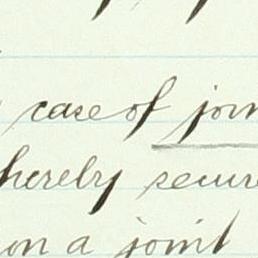 case of join
hereby secure
on a joint